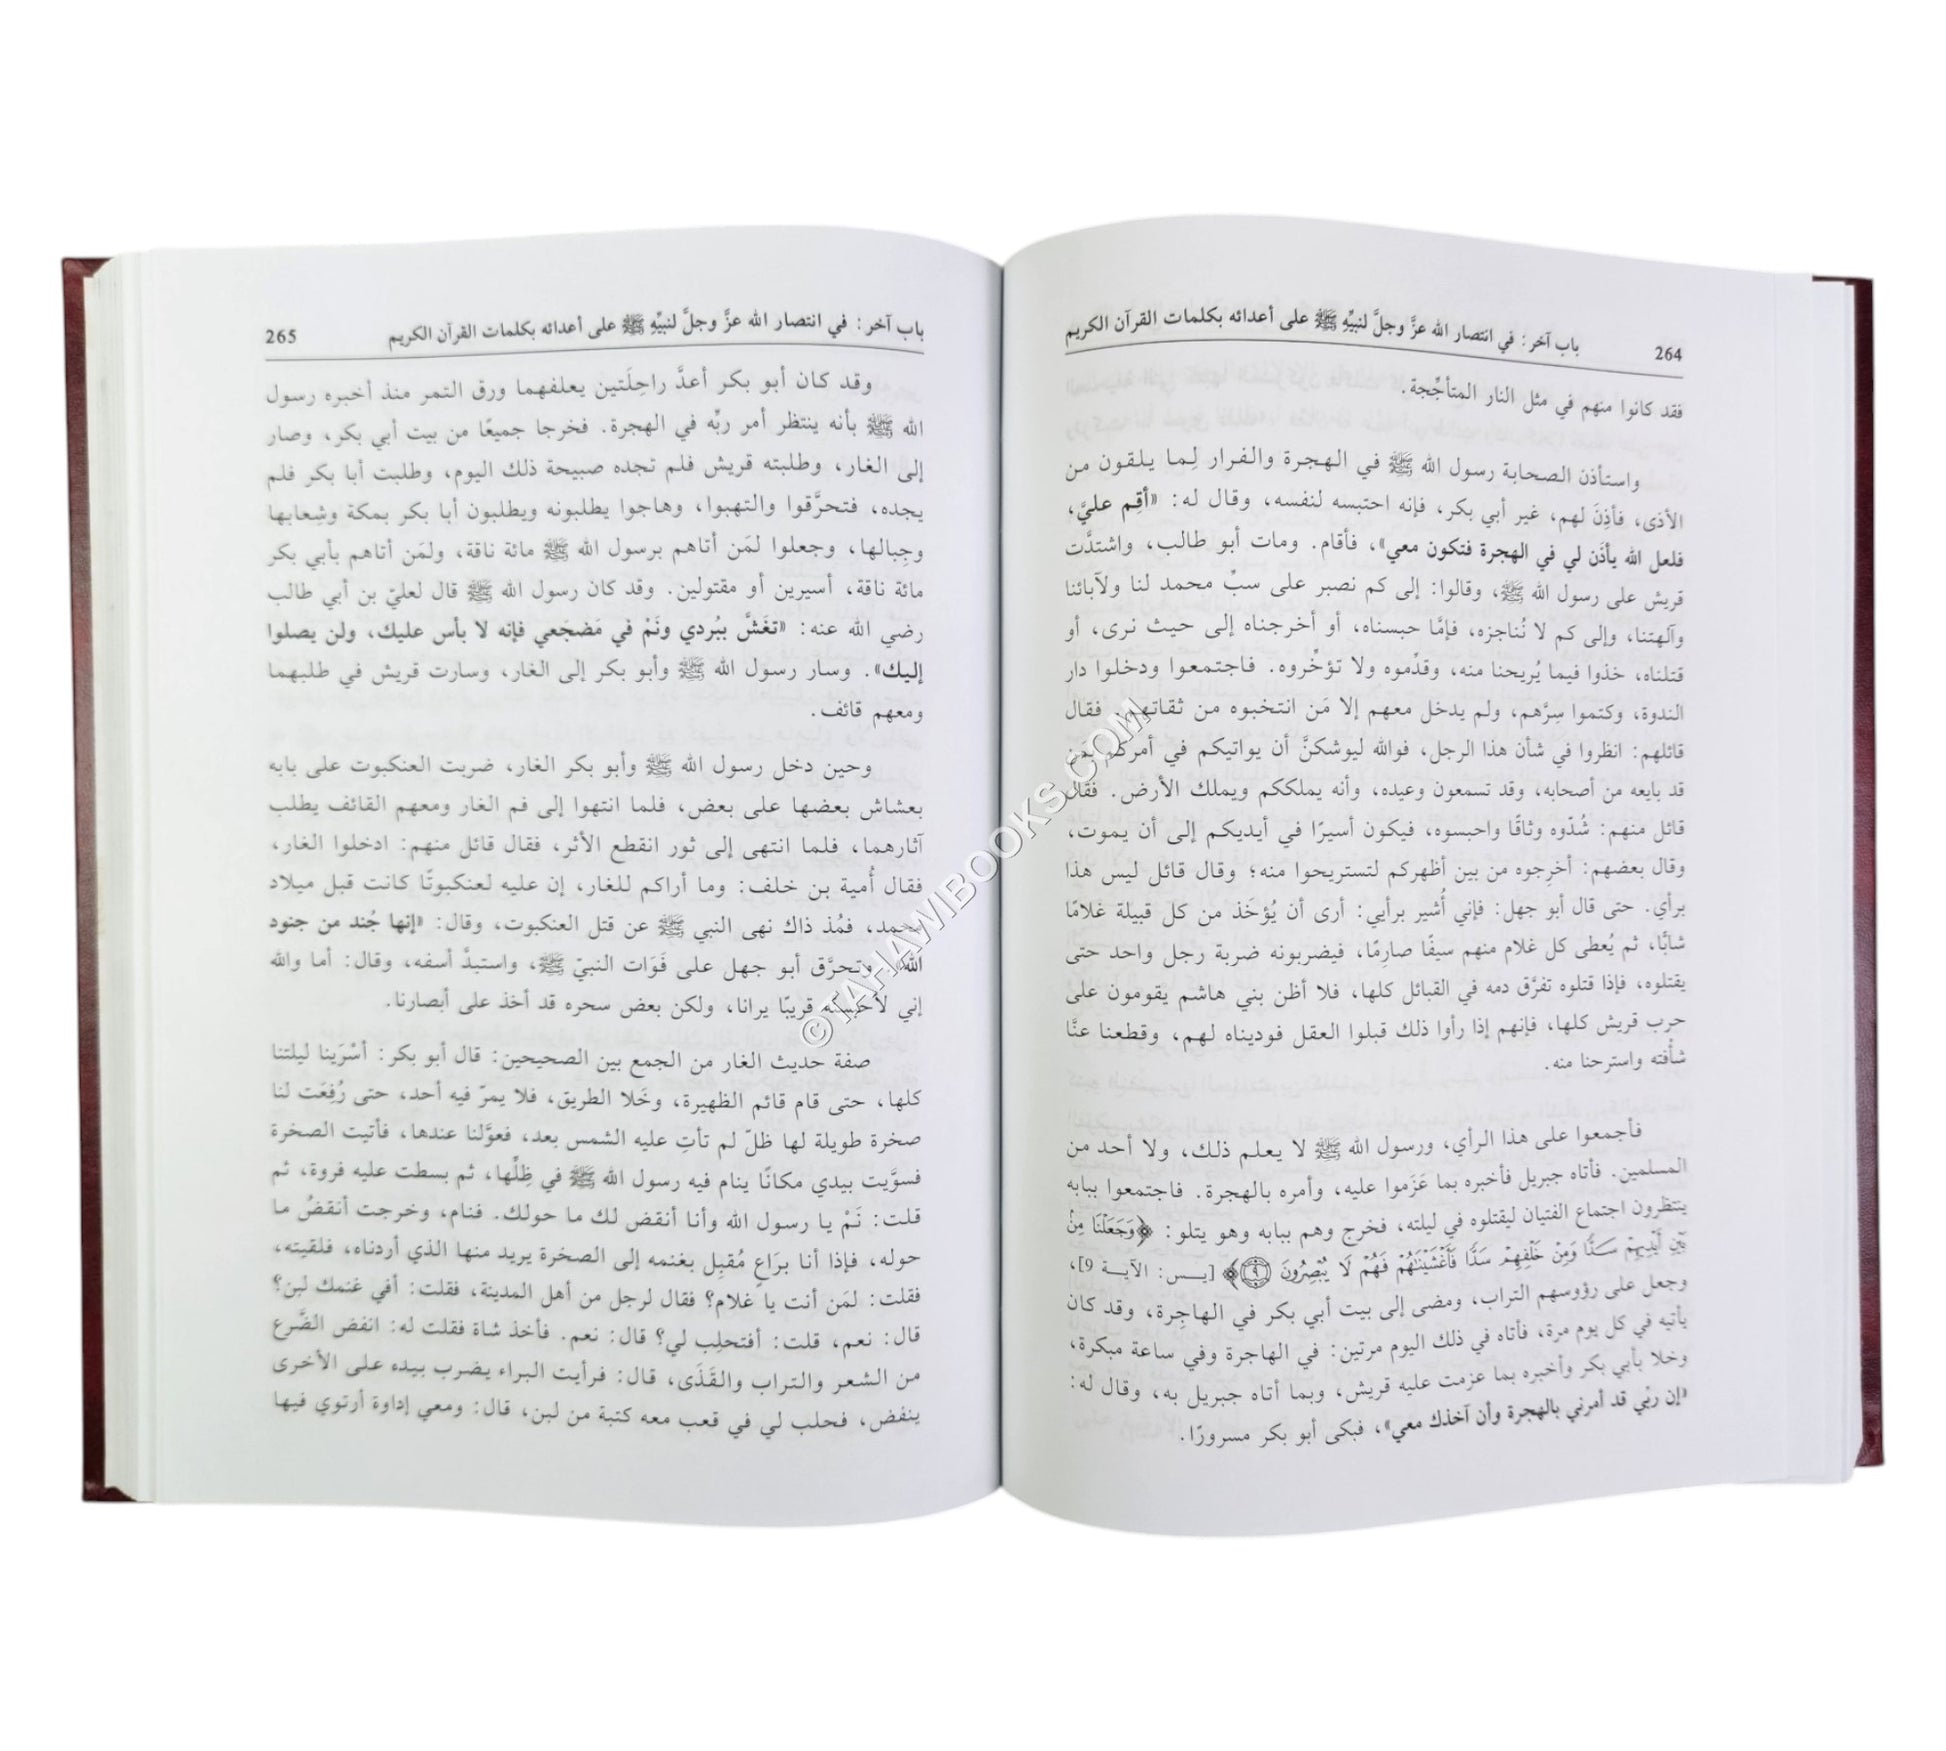 264
باب آخر: في انتصار الله عزَّ وجلَّ لنبيِّهِ ﷺ على أعدائه بكلمات القرآن الكريم
فقد كانوا منهم في مثل النار المتأجِّجة.
واستأذن الصحابة رسول الله ﷺ في الهجرة والفرار لِما يلقون من
الأذى، فأذِنَ لهم، غير أبي بكر، فإنه احتبسه لنفسه، وقال له: «أقِم عليَّ،
فلعل الله يأذَن لي في الهجرة فتكون معي»، فأقام. ومات أبو طالب، واشتدَّت
قريش على رسول الله ﷺ، وقالوا: إلى كم نصبر على سبِّ محمد لنا ولآبائنا
وآلهتنا، وإلى كم لا نُناجزه، فإمَّا حبسناه، أو أخرجناه إلى حيث نرى، أو
قتلناه، خذوا فيما يُريحنا منه، وقدِّموه ولا تؤخِّروه. فاجتمعوا ودخلوا دار
الندوة، وكتموا سِرَّهم، ولم يدخل معهم إلا مَن انتخبوه من ثقاتهم. فقال
قائلهم: انظروا في شأن هذا الرجل، فوالله ليوشكنَّ أن يواتيكم في أمركم بمَن
قد بايعه من أصحابه، وقد تسمعون وعيده، وأنه يملككم ويملك الأرض. فقال
قائل منهم: شُدّوه وثاقًا واحبسوه، فيكون أسيرًا في أيديكم إلى أن يموت،
وقال بعضهم: أخرِجوه من بين أظهركم لتستريحوا منه؛ وقال قائل ليس هذا
برأي. حتى قال أبو جهل: فإني أُشير برأيي: أرى أن يُؤخَذ من كل قبيلة غلامًا
شابًّا، ثم يُعطى كل غلام منهم سيفًا صارِمًا، فيضربونه ضربة رجل واحد حتى
يقتلوه، فإذا قتلوه تفرَّق دمه في القبائل كلها، فلا أظن بني هاشم يقومون على
حرب قريش كلها، فإنهم إذا رأوا ذلك قبلوا العقل فوديناه لهم، وقطعنا عنَّا
شأْفته واسترحنا منه.
فأجمعوا على هذا الرأي، ورسول الله ﷺ لا يعلم ذلك، ولا أحد من
المسلمين. فأتاه جبريل فأخبره بما عَزَموا عليه، وأمره بالهجرة. فاجتمعوا ببابه
ينتظرون اجتماع الفتيان ليقتلوه في ليلته، فخرج وهم ببابه وهو يتلو: ﴿وَجَعَلْنَا مِنْ
بَيْنِ أَيْدِيهِمْ سَدًّا وَمِنْ خَلْفِهِمْ سَدًّا فَأَغْشَيْنَاهُمْ فَهُمْ لَا يُبْصِرُونَ ۝٩﴾ [يــس: الآيــة 9]،
وجعل على رؤوسهم التراب، ومضى إلى بيت أبي بكر في الهاجِرة، وقد كان
يأتيه في كل يوم مرة، فأتاه في ذلك اليوم مرتين: في الهاجرة وفي ساعة مبكرة،
وخلا بأبي بكر وأخبره بما عزمت عليه قريش، وبما أتاه جبريل به، وقال له:
«إن ربّي قد أمرني بالهجرة وأن آخذك معي»، فبكى أبو بكر مسرورًا.
باب آخر: في انتصار الله عزَّ وجلَّ لنبيِّهِ ﷺ على أعدائه بكلمات القرآن الكريم
265
وقد كان أبو بكر أعدَّ راحِلَتين يعلفهما ورق التمر منذ أخبره رسول
الله ﷺ بأنه ينتظر أمر ربِّه في الهجرة. فخرجا جميعًا من بيت أبي بكر، وصار
إلى الغار، وطلبته قريش فلم تجده صبيحة ذلك اليوم، وطلبت أبا بكر فلم
يجده، فتحرَّقوا والتهبوا، وهاجوا يطلبونه ويطلبون أبا بكر بمكة وشِعابها
وجِبالها، وجعلوا لمَن أتاهم برسول الله ﷺ مائة ناقة، ولمَن أتاهم بأبي بكر
مائة ناقة، أسيرين أو مقتولين. وقد كان رسول الله ﷺ قال لعليّ بن أبي طالب
رضي الله عنه: «تغَشَّ ببُردي ونَمْ في مَضجَعي فإنه لا بأس عليك، ولن يصلوا
إليك». وسار رسول الله ﷺ وأبو بكر إلى الغار، وسارت قريش في طلبهما
ومعهم قائف.
وحين دخل رسول الله ﷺ وأبو بكر الغار، ضربت العنكبوت على بابه
بعشاش بعضها على بعض، فلما انتهوا إلى فم الغار ومعهم القائف يطلب
آثارهما، فلما انتهى إلى ثور انقطع الأثر، فقال قائل منهم: ادخلوا الغار،
فقال أُمية بن خلف: وما أراكم للغار، إن عليه لعنكبوتًا كانت قبل ميلاد
محمد، فمُذ ذاك نهى النبي ﷺ عن قتل العنكبوت، وقال: «إنها جُند من جنود
الله». وتحرَّق أبو جهل على فَوَات النبيّ ﷺ، واستبدَّ أسفه، وقال: أما والله
إني لأحسبه قريبًا يرانا، ولكن بعض سحره قد أخذ على أبصارنا.
صفة حديث الغار من الجمع بين الصحيحين: قال أبو بكر: أسْرَينا ليلتنا
كلها، حتى قام قائم الظهيرة، وخَلا الطريق، فلا يمرّ فيه أحد، حتى رُفِعَت لنا
صخرة طويلة لها ظلّ لم تأتِ عليه الشمس بعد، فعوَّلنا عندها، فأتيت الصخرة
فسوَّيت بيدي مكانًا ينام فيه رسول الله ﷺ في ظِلِّها، ثم بسطت عليه فروة، ثم
قلت: نَمْ يا رسول الله وأنا أنقض لك ما حولك. فنام، وخرجت أنقضُ ما
حوله، فإذا أنا برَاعٍ مُقبِل بغنمه إلى الصخرة يريد منها الذي أردناه، فلقيته،
فقلت: لمَن أنت يا غلام؟ فقال لرجل من أهل المدينة، فقلت: أفي غنمك لبن؟
قال: نعم، قلت: أفتحلِب لي؟ قال: نعم. فأخذ شاة فقلت له: انفض الضَّرع
من الشعر والتراب والقَذَى، قال: فرأيت البراء يضرب بيده على الأخرى
ينفض، فحلب لي في قعب معه كتبة من لبن، قال: ومعي إداوة أرتوي فيها
©TAHAWIBOOKS.COM